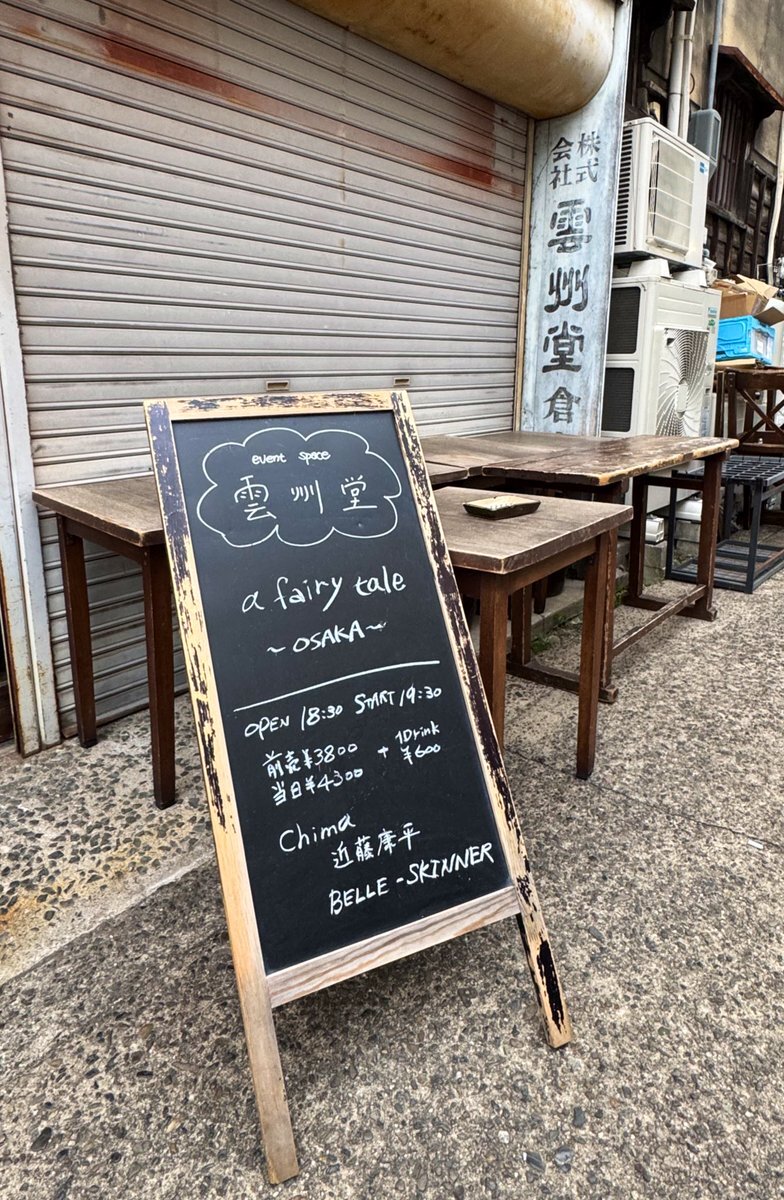 event space
雲州堂
a fairy tale
~OSAKA~
OPEN 18:30 START 19:30
前売¥3800
当日¥4300
+ 1Drink
¥600
Chima
近藤康平
BELLE-SKINNER
株式
会社
雲州堂倉